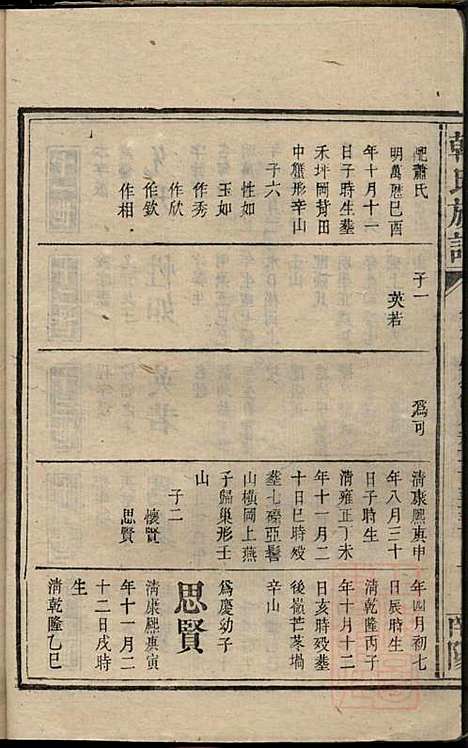 韓氏族譜
南陽
配蕭氏
明萬曆己酉
年十月十一
日子時生塟
禾坪岡背田
中蟹形辛山
子六
性如
玉如
作秀
作欣
作欽
作相
子一
英若
爲可
清康熙庚申
年八月三十
日子時生
清雍正丁未
年十一月二
十日巳時殁
塟七磜亞髻
山橫岡上燕
子歸巢形壬
山
子二
懷賢
思賢
年四月初七
日辰時生
清乾隆丙子
年十月十二
日亥時殁塟
後嶺芒苳塢
辛山
思賢
爲慶幼子
清康熙庚寅
年十一月二
十二日戌時
生
清乾隆乙巳